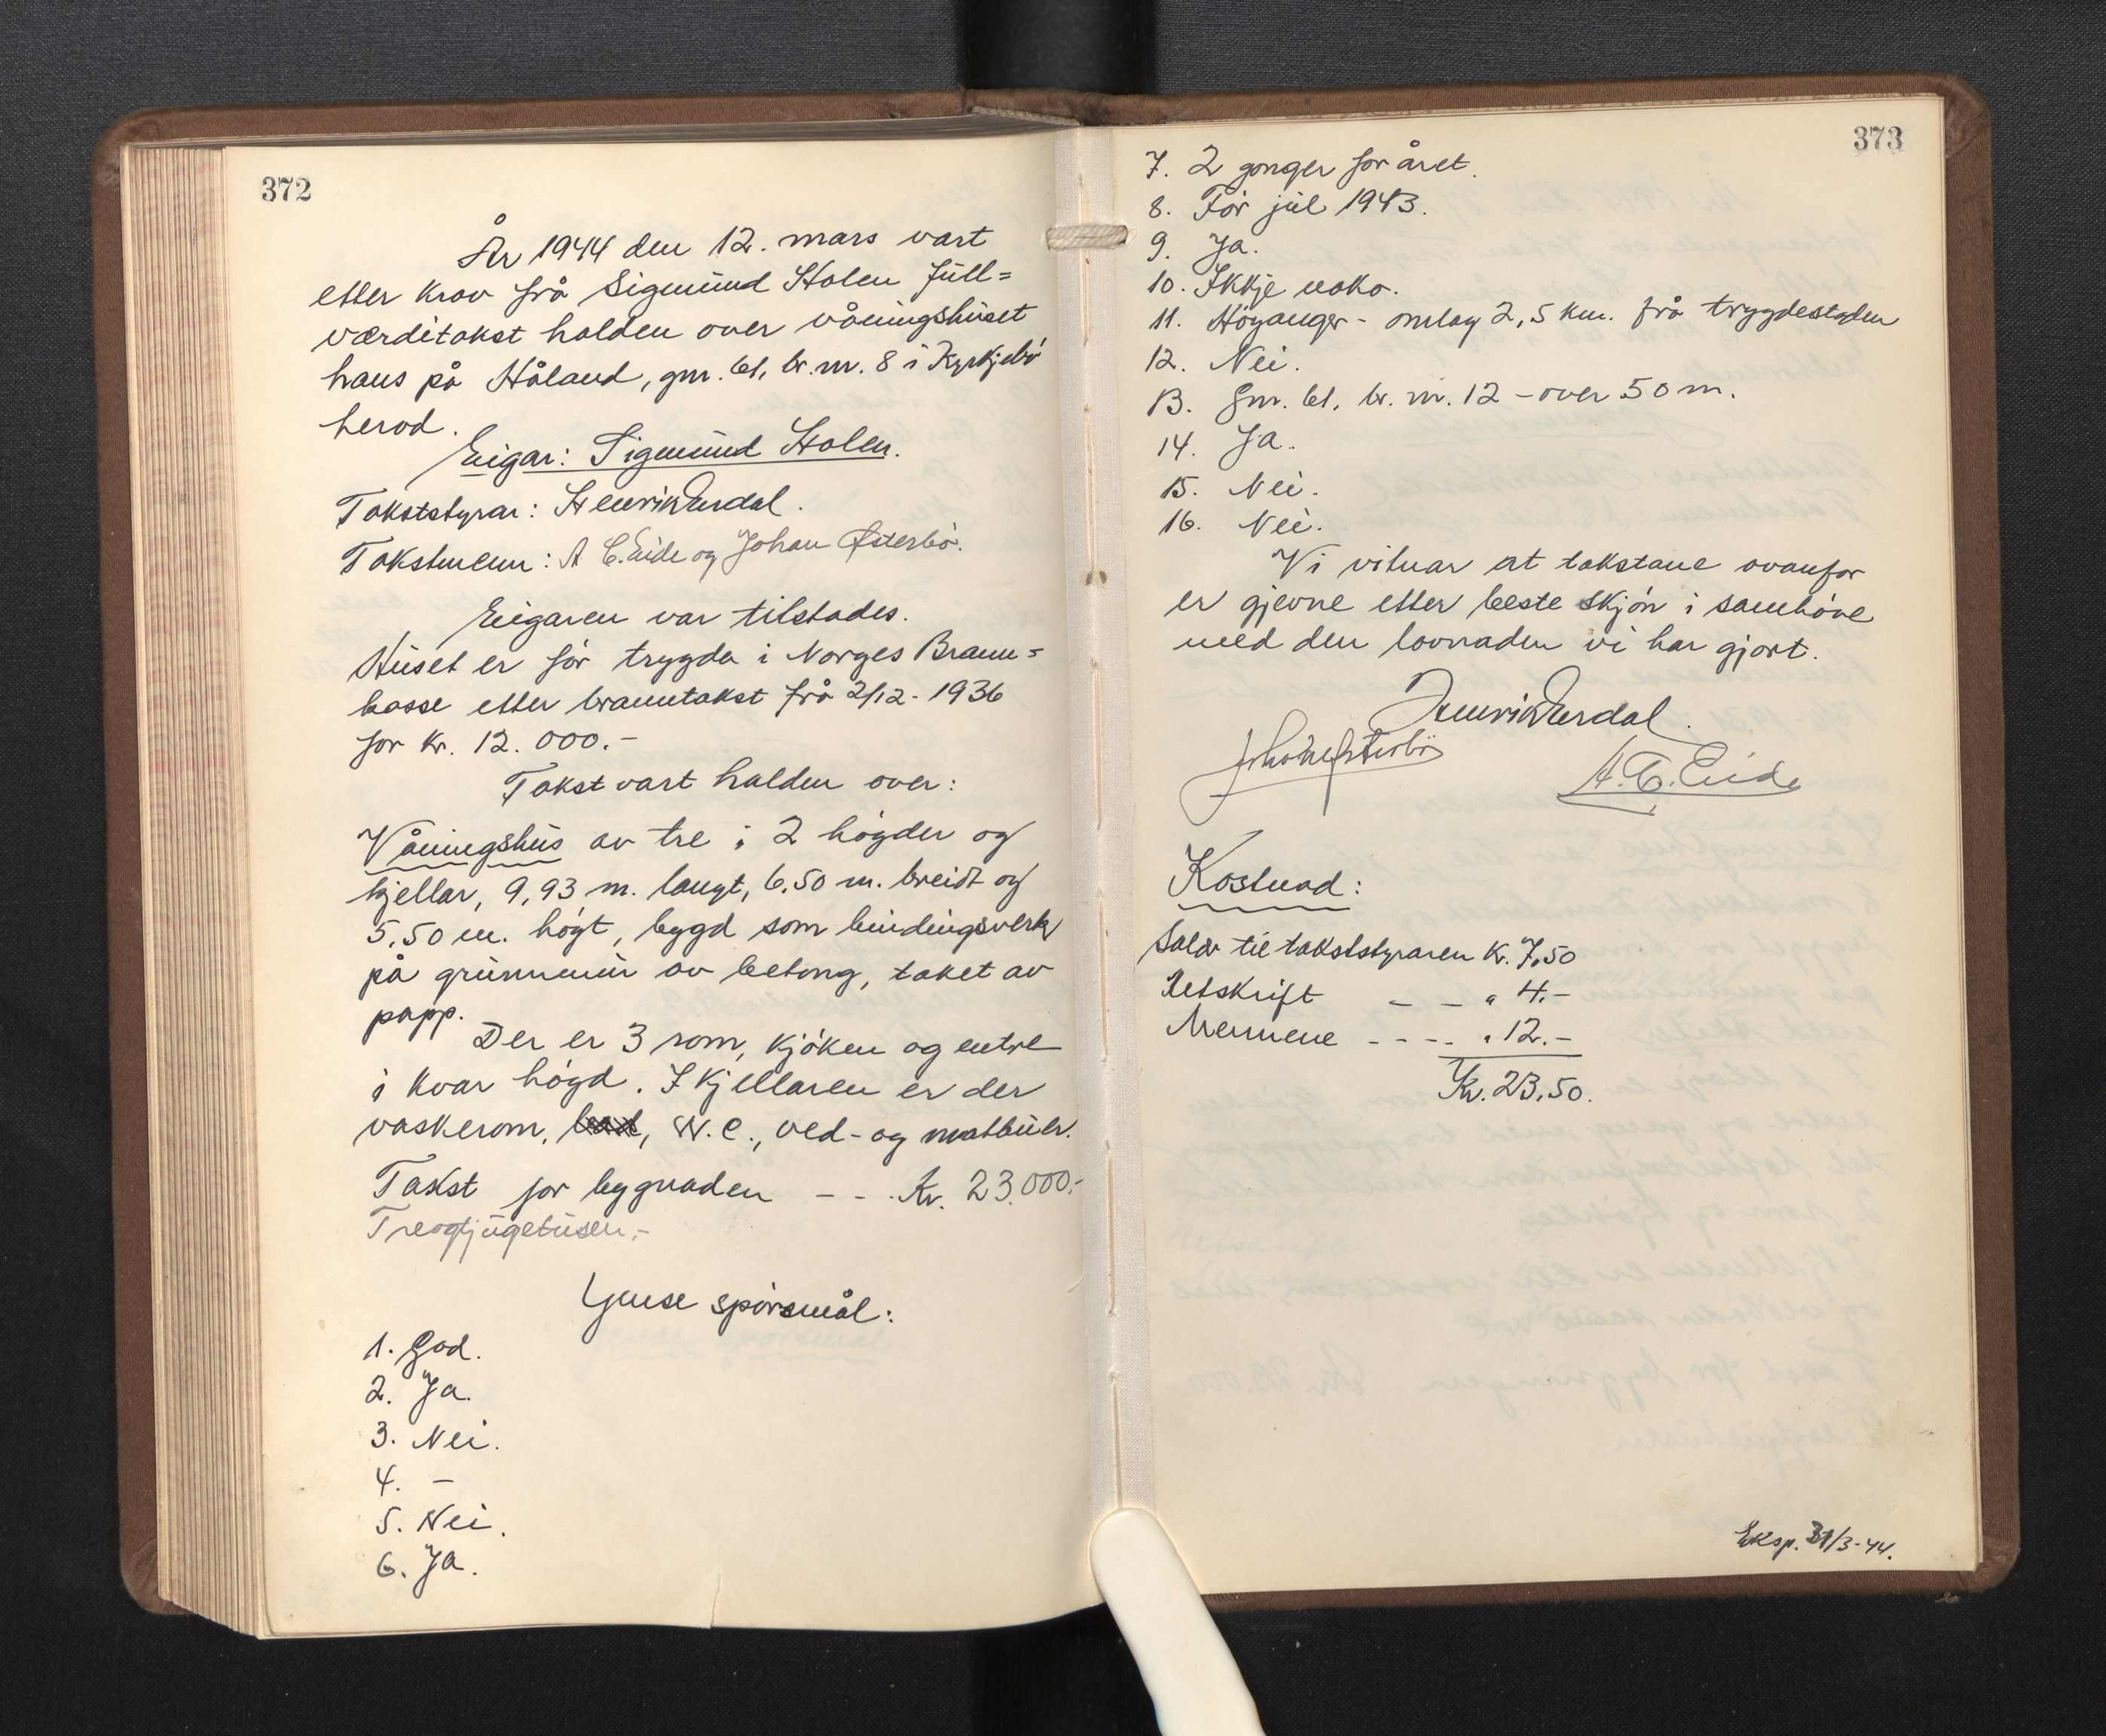 372
År 1944 den 12. mars vart
etter krav frå Sigmund Holen full=
værditakst halden over våningshuset
hans på Håland, gnr. 61, br. nr. 8 i Kyrkjebö
herad.
Eigar: Sigmund Holen.
Takststyrar: Henrik Erdal.
Takstmenn: A C. Eide og Johan Østerbö.
Eigaren var tilstades.
Huset er för trygda i Norges Brann=
kasse etter branntakst frå 2/12- 1936
for kr. 12.000.-
Takst vart halden over:
Våningshus av tre i 2 högder og
kjellar, 9,93 m. langt, 6.50 m. breidt og
5,50 m. högt, bygd som bindingsverk
på grunnmur av betong, taket av
papp.
Der er 3 rom, kjöken og entre
i kvar högd. I kjellaren er der
vaskerom, bad, W.C., ved- og matbuer.
Takst for bygnaden - - . Kr. 23.000.-
Treogtjugetusen.-
Ymse spörsmål:
1. God.
2. Ja.
3. Nei.
4. -
5. Nei.
6. Ja.
373
7. 2 gonger for året.
8. För jul 1943.
9. Ja.
10. Ikkje noko.
11. Höyanger - omlag 2,5 km. frå trygdestaden
12. Nei.
13. Gnr. 61, br. nr. 12 - over 50 m.
14. Ja.
15. Nei.
16. Nei.
Vi vitnar at takstane ovanfor
er gjevne etter beste skjön i samhöve
med den lovnaden vi har gjort.
Henrik Erdal.
Johan Østerbö
A. C. Eide
Kostnad:
Salær til takststyraren Kr. 7,50
Utskrift - - " 4.-
Mennene - - - - " 12.-
Kr. 23,50.
Eksp. 31/3-44.